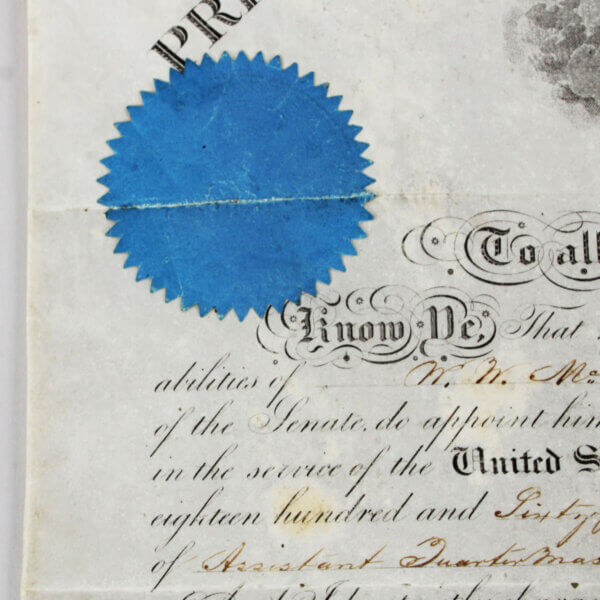 PRE
To all
Know Ye, That
abilities of W. W. Mc
of the Senate, do appoint him
in the service of the United S
eighteen hundred and Sixty
of Assistant Quarter Mas